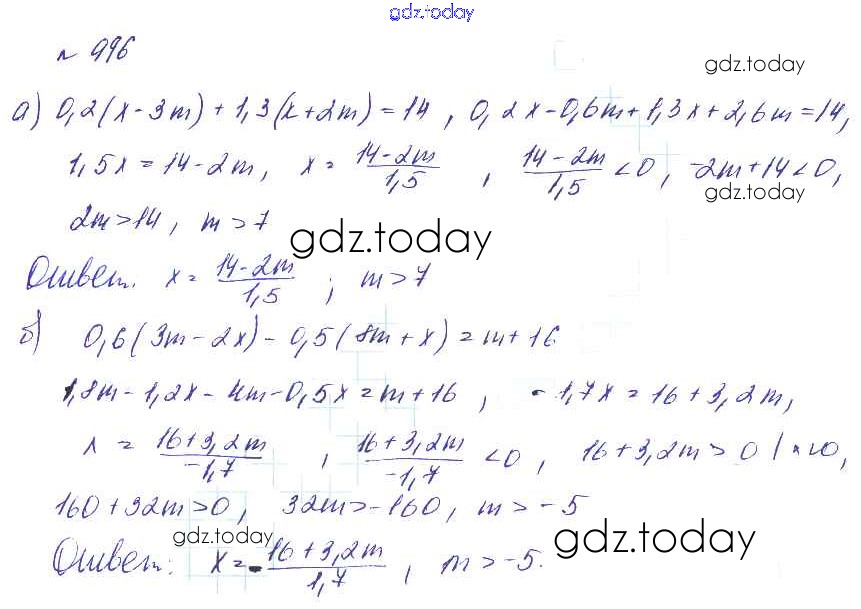 gdz.today
№ 996
gdz.today
а) 0,2(x-3m)+1,3(x+2m)=14, 0,2x-0,6m+1,3x+2,6m=14,
1,5x=14-2m, x=\frac{14-2m}{1,5}, \frac{14-2m}{1,5}<0, -2m+14<0,
gdz.today
2m>14, m>7
gdz.today
Ответ. x=\frac{14-2m}{1,5}; m>7
б) 0,6(3m-2x)-0,5(8m+x)=m+16
1,8m-1,2x-4m-0,5x=m+16, -1,7x=16+3,2m,
x=\frac{16+3,2m}{-1,7}, \frac{16+3,2m}{-1,7}<0, 16+3,2m>0 |
160+32m>0, 32m>-160, m>-5
gdz.today
gdz.today
Ответ: x=-\frac{16+3,2m}{1,7}, m>-5.